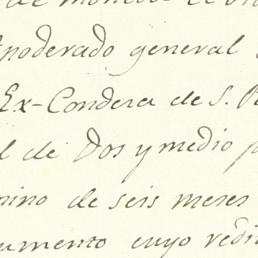 de
poderado general
Ex-Condesa de S.
l de Dos y medio p
mino de seis meses
umento cuyo redi